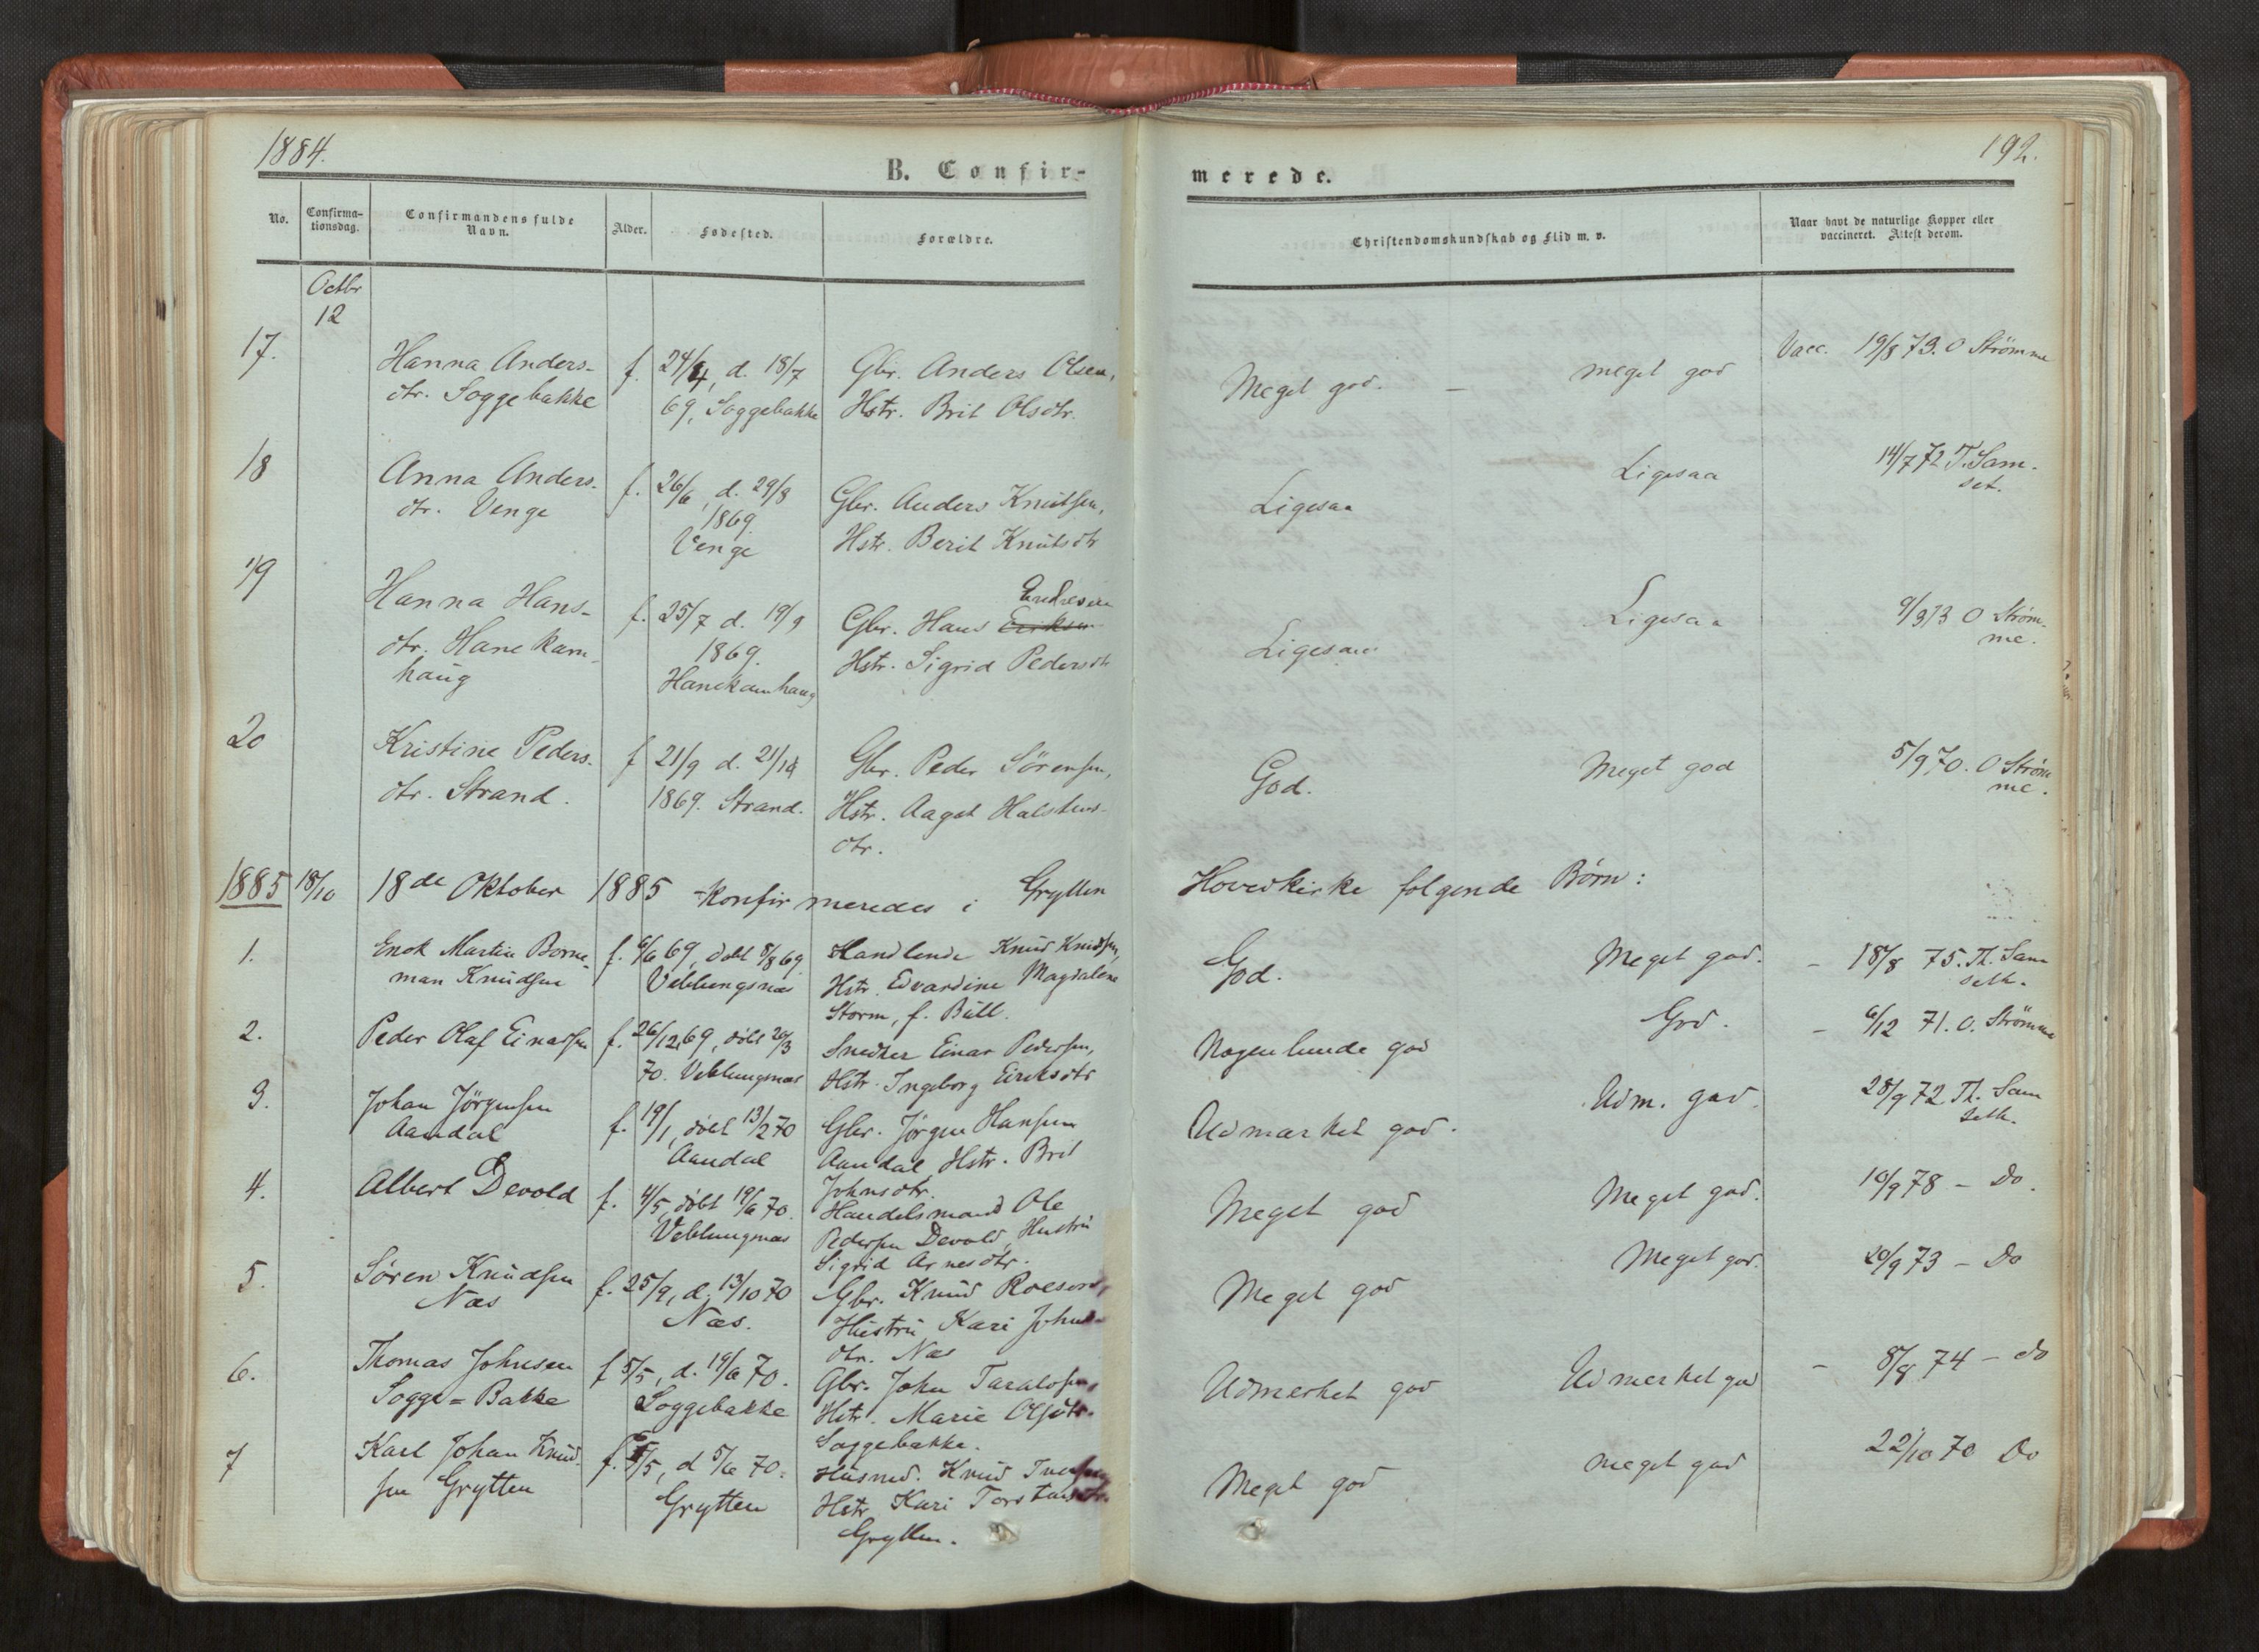 1884.
192.
B. Confir-
merede.
No.
Confirma-
tionsdag.
Confirmandens fulde
Navn.
Alder.
Fødested.
Forældre.
Christendomskundskab og Flid m. v.
Naar havt de naturlige Kopper eller
vaccineret. Attest derom.
Octbr
12
17. Hanna Anders- f. 24/4, d. 18/7 Gbr. Anders Olsen, Meget god. — meget god Vacc. 19/8 73. O Strömme
dtr. Soggebakke 69, Soggebakke Hstr. Brit Olsdtr.
18 Anna Anders- f. 26/6, d. 29/8 Gbr. Anders Knutsen, Ligesaa Ligesaa 14/7 72 T. Sam-
set.
dtr. Venge 1869 Hstr. Berit Knutsdtr
Venge
19 Hanna Hans- f. 25/7 d. 19/9 Gbr. Hans Eriksen Endresen Ligesaa Ligesaa 9/9 73 O Strøm-
me.
dtr. Hanekam- 1869. Hstr. Sigrid Pedersdtr
haug Hanekamhaug
20 Kristine Peders- f 21/9 d. 21/10 Gbr. Peder Sörensen, God. Meget god 5/9 70. O Strøm
me.
dtr. Strand. 1869. Strand. Hstr. Aagot Halstens-
dtr.
1885 18/10 18de Oktober 1885 konfirmeredes i Grytten Hovedkirke følgende Børn:
1. Enok Martin Borne- f. 6/6 69, døbt 8/8 69 Handlende Knud Knudsen, God. Meget god. – 18/8 75. Th. Sam
seth.
man Knudsen Veblungsnæs Hstr. Edvardine Magdalene
Storm, f. Bull.
2. Peder Olaf Einarsen f. 26/12 69, døbt 20/3 Snedker Einar Pedersen, Nogenlunde god God. – 6/12 71. O. Strömme
70. Veblungsnæs Hstr. Ingeborg Eiriksdtr
3. Johan Jörgensen f. 19/1, døbt 13/2 70 Gbr. Jörgen Hansen Udmærket god. Udm. god. 28/9 72. Th. Sam
seth.
Aandal Aandal Aandal, Hstr. Brit
Johnsdtr.
4. Albert Devold f. 4/5, døbt 19/6 70. Handelsmand Ole Meget god Meget god. 10/9 78 – Do.
Veblungsnæs Pedersen Devold, Hustru
Sigrid Arnesdtr.
5. Søren Knudsen f. 25/9, d. 13/10 70 Gbr. Knud Meget god Meget god. 20/9 73 – Do
Næs Næs. Hustru Kari Johns-
dtr. Næs
6. Thomas Johnsen f 5/5, d. 19/6 70. Gbr. John Taraldsen, Udmerket god Udmerket god – 8/8 74 – do
Sogge-Bakke Soggebakke Hstr. Marie Olsdtr.
Soggebakke.
7 Karl Johan Knud- f. /5, d 5/6 70. Husmd. Knud Iversen Meget god meget god 22/10 70 Do
sen Grytten Grytten Hstr Kari Torstensdtr.
Grytten.